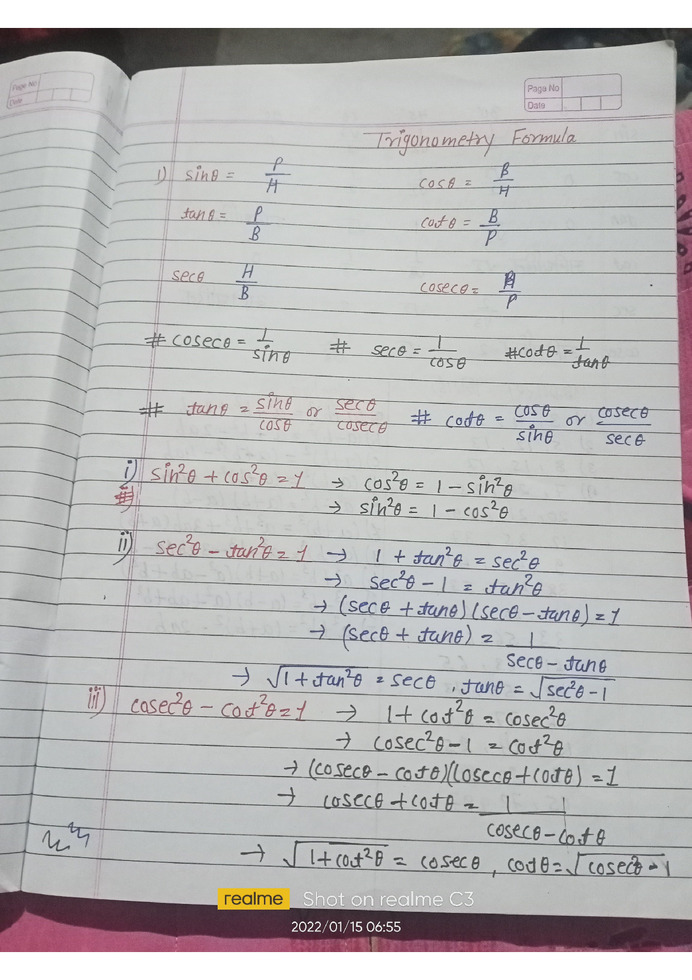 Page No
Date
Page No
Date
Trigonometry Formula
1) sinθ = P/H cosθ = B/H
tanθ = P/B cotθ = B/P
secθ H/B cosecθ = H/P
# cosecθ = 1/sinθ # secθ = 1/cosθ #cotθ = 1/tanθ
# tanθ = sinθ/cosθ or secθ/cosecθ # cotθ = cosθ/sinθ or cosecθ/secθ
i) sin²θ + cos²θ = 1 → cos²θ = 1 – sin²θ
# → sin²θ = 1 – cos²θ
ii) sec²θ – tan²θ = 1 → 1 + tan²θ = sec²θ
→ sec²θ – 1 = tan²θ
→ (secθ + tanθ) (secθ – tanθ) = 1
→ (secθ + tanθ) = 1/secθ – tanθ
→ √1 + tan²θ = secθ , tanθ = √sec²θ – 1
iii) cosec²θ – cot²θ = 1 → 1 + cot²θ = cosec²θ
→ cosec²θ – 1 = cot²θ
→ (cosecθ – cotθ)(cosecθ + cotθ) = 1
→ cosecθ + cotθ = 1/cosecθ – cotθ
→ √1 + cot²θ = cosecθ , cotθ = √cosec²θ – 1
realme Shot on realme C3
2022/01/15 06:55